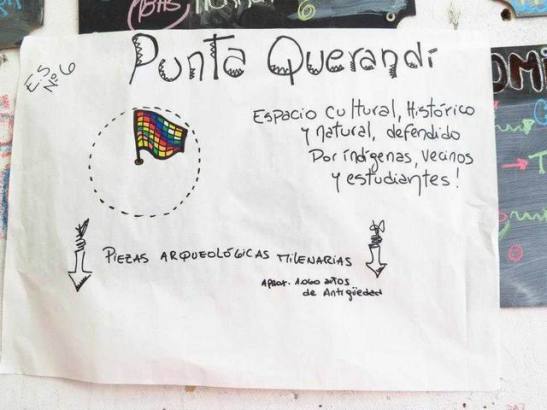 E.S
Nº6
Punta Querandí
Espacio cultural, Histórico
y natural, defendido
Por indígenas, vecinos
y estudiantes!
PIEZAS ARQUEOLÓGICAS MILENARIAS
APROX. 1.060 AÑOS
de Antigüedad